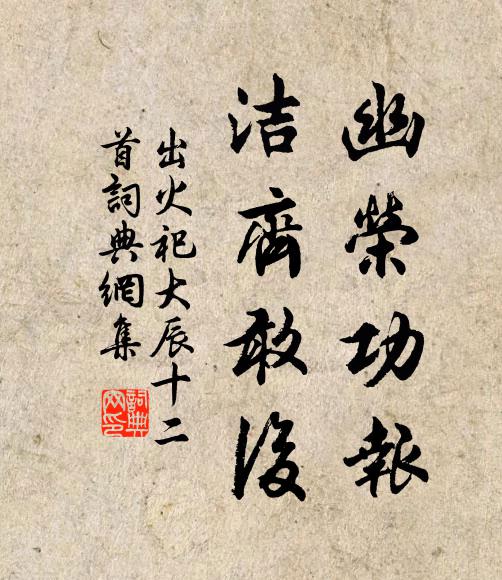 幽榮功報
洁齊敢後
出火祀大辰十二
首詞典網集
詞典
网印